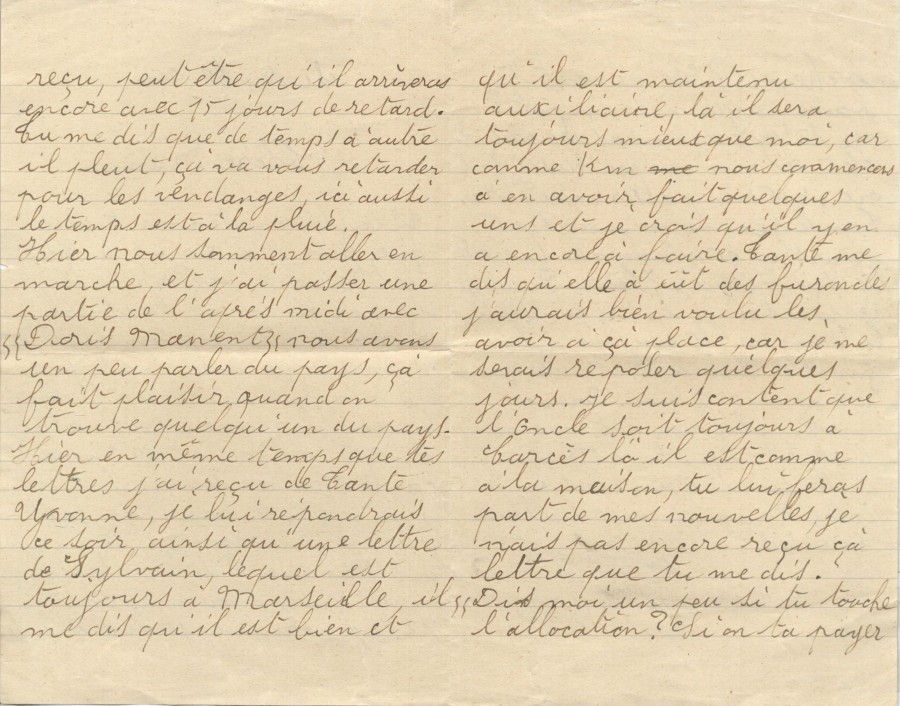 reçu, peut être qu'il arriveras
encore avec 15 jours de retard.
Tu me dis que de temps à autre
il pleut, ça va vous retarder
pour les vendanges, ici aussi
le temps est à la pluie.
Hier nous somment aller en
marche, et j'ai passer une
partie de l'après midi avec
Doris Manent, nous avons
un peu parler du pays, çà
fait plaisir quand on
trouve quelqu'un du pays.
Hier en même temps que tes
lettres j'ai reçu de Tante
Yvonne, je lui répondrais
ce soir ainsi qu'une lettre
de Sylvain, lequel est
toujours à Marseille, il
me dis qu'il est bien et
qu'il est maintenu
auxiliaire, là il sera
toujours mieux que moi, car
comme Km me nous commencons
à en avoir fait quelques
uns et je crois qu'il y en
a encore à faire. Tante me
dis qu'elle à eût des furoncles
j'aurais bien voulu les
avoir à çà place, car je me
serais reposer quelques
jours. Je suis content que
l'Oncle soit toujours à
Carcès là il est comme
à la maison, tu lui feras
part de mes nouvelles, je
n'ais pas encore reçu çà
lettre que tu me dis.
Dis moi un peu si tu touche
l'allocation? Si on ta payer